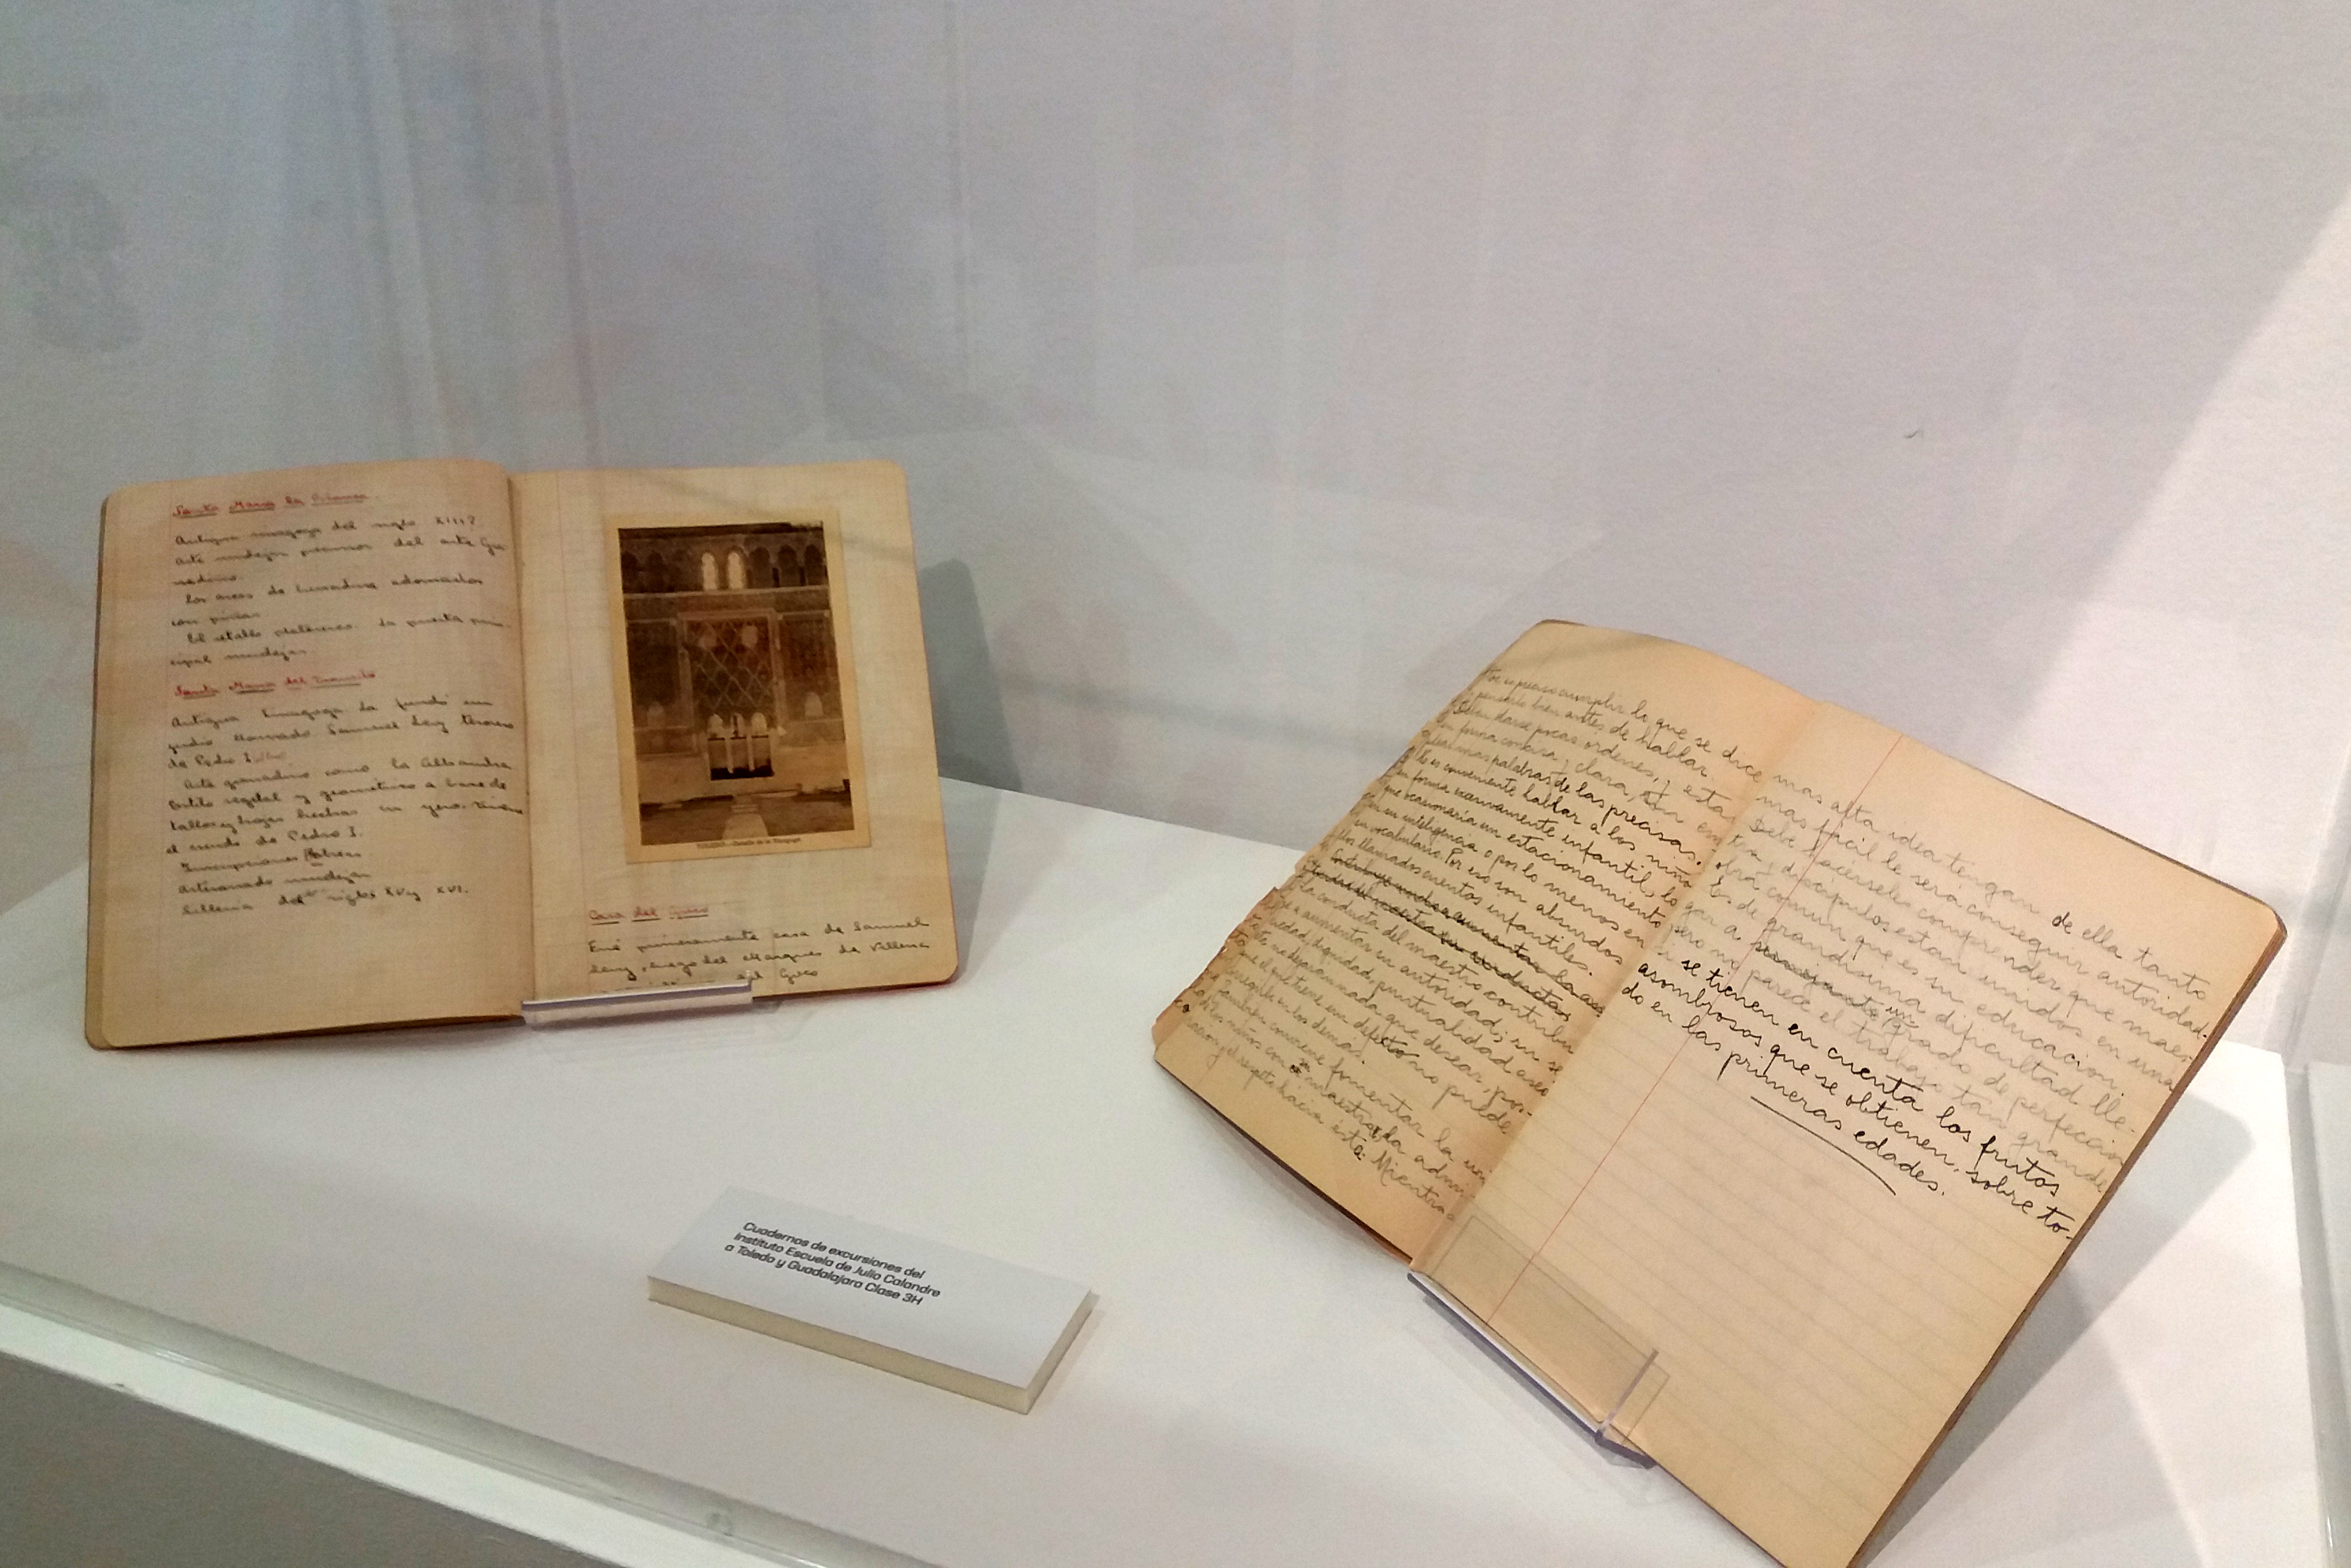 Santa Maria la Blanca.
Antigua sinagoga del siglo XIII?
Arte mudejar precursor del arte Gra
nadino.
Los arcos de herradura adornados
con piñas
El retablo plateresco. La puerta prin-
cipal mudejar
Santa Maria del Transito
Antigua Sinagoga la fundó un
judio llamado Samuel Levy tesorero
de Pedro I
Arte granadino como la Alhambra
Estilo vegetal y geométrico a base de
tallos y hojas hechas en yeso. Tiene
el escudo de Pedro I.
Inscripciones
Artesonado mudejar
Silleria del siglos XV y XVI.
TOLEDO.-Detalle de la Sinagoga
Casa del Greco
Fué primeramente casa de Samuel
Levy, luego del Marques de Villena
del Greco
Cuadernos de excursiones del
Instituto Escuela de Julia Calandre
a Toledo y Guadalajara Clase 3H
es preciso cumplir lo que se dice
pensarlo bien antes de hablar.
Deben darse pocas ordenes, y estas
en forma concisa y clara, sin em
plear mas palabras de las precisas.
No es conveniente hablar a los niños
en forma excesivamente infantil, lo
que ocasionaría un estacionamiento
en su inteligencia o por lo menos en
su vocabulario. Por eso son absurdos
los llamados cuentos infantiles.
Contribuye mucho a aumentar la au
la conducta del maestro contribu
ye a aumentar su autoridad; su se
riedad, dignidad, puntualidad, aseo
no dejaran nada que desear, por-
que el que tiene un defecto no puede
corregirlo en los demás.
Tambien conviene fomentar la uni
de los niños con su maestra, la admi
racion y el respeto hacia esta. Mientras
mas alta idea tengan de ella tanto
mas fácil le será conseguir autoridad.
Debe hacérseles comprender que maes
tra y discipulos estan unidos en una
obra comun que es su educacion.
Es de grandisima dificultad lle-
gar a un grado de perfeccion
pero no parece el trabajo tan grande
si se tienen en cuenta los frutos
asombrosos que se obtienen, sobre to-
do en las primeras edades.